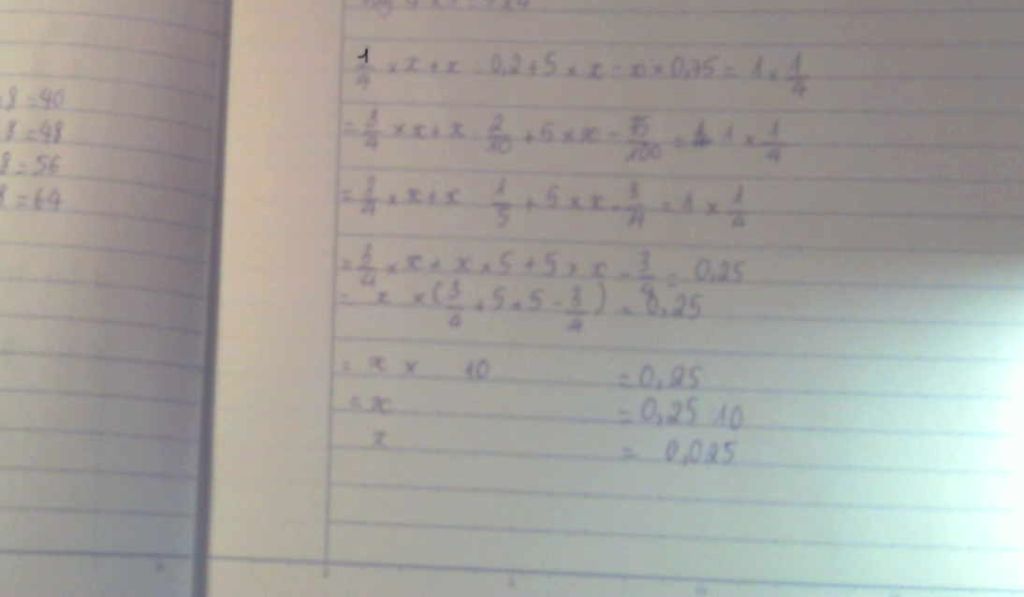 8 = 40
8 = 48
8 = 56
8 = 64
1/4 × x + x 0,2 + 5 × x - x × 0,75 = 1 × 1/4
= 1/4 × x + x 2/10 + 5 × x - 75/100 = 1 × 1/4
= 1/4 × x + x 1/5 + 5 × x - 3/4 = 1 × 1/4
= 1/4 × x + x × 5 + 5 × x - 3/4 = 0,25
= x × (3/4 + 5 + 5 - 3/4) = 0,25
= x × 10 = 0,25
= x = 0,25 10
x = 0,025